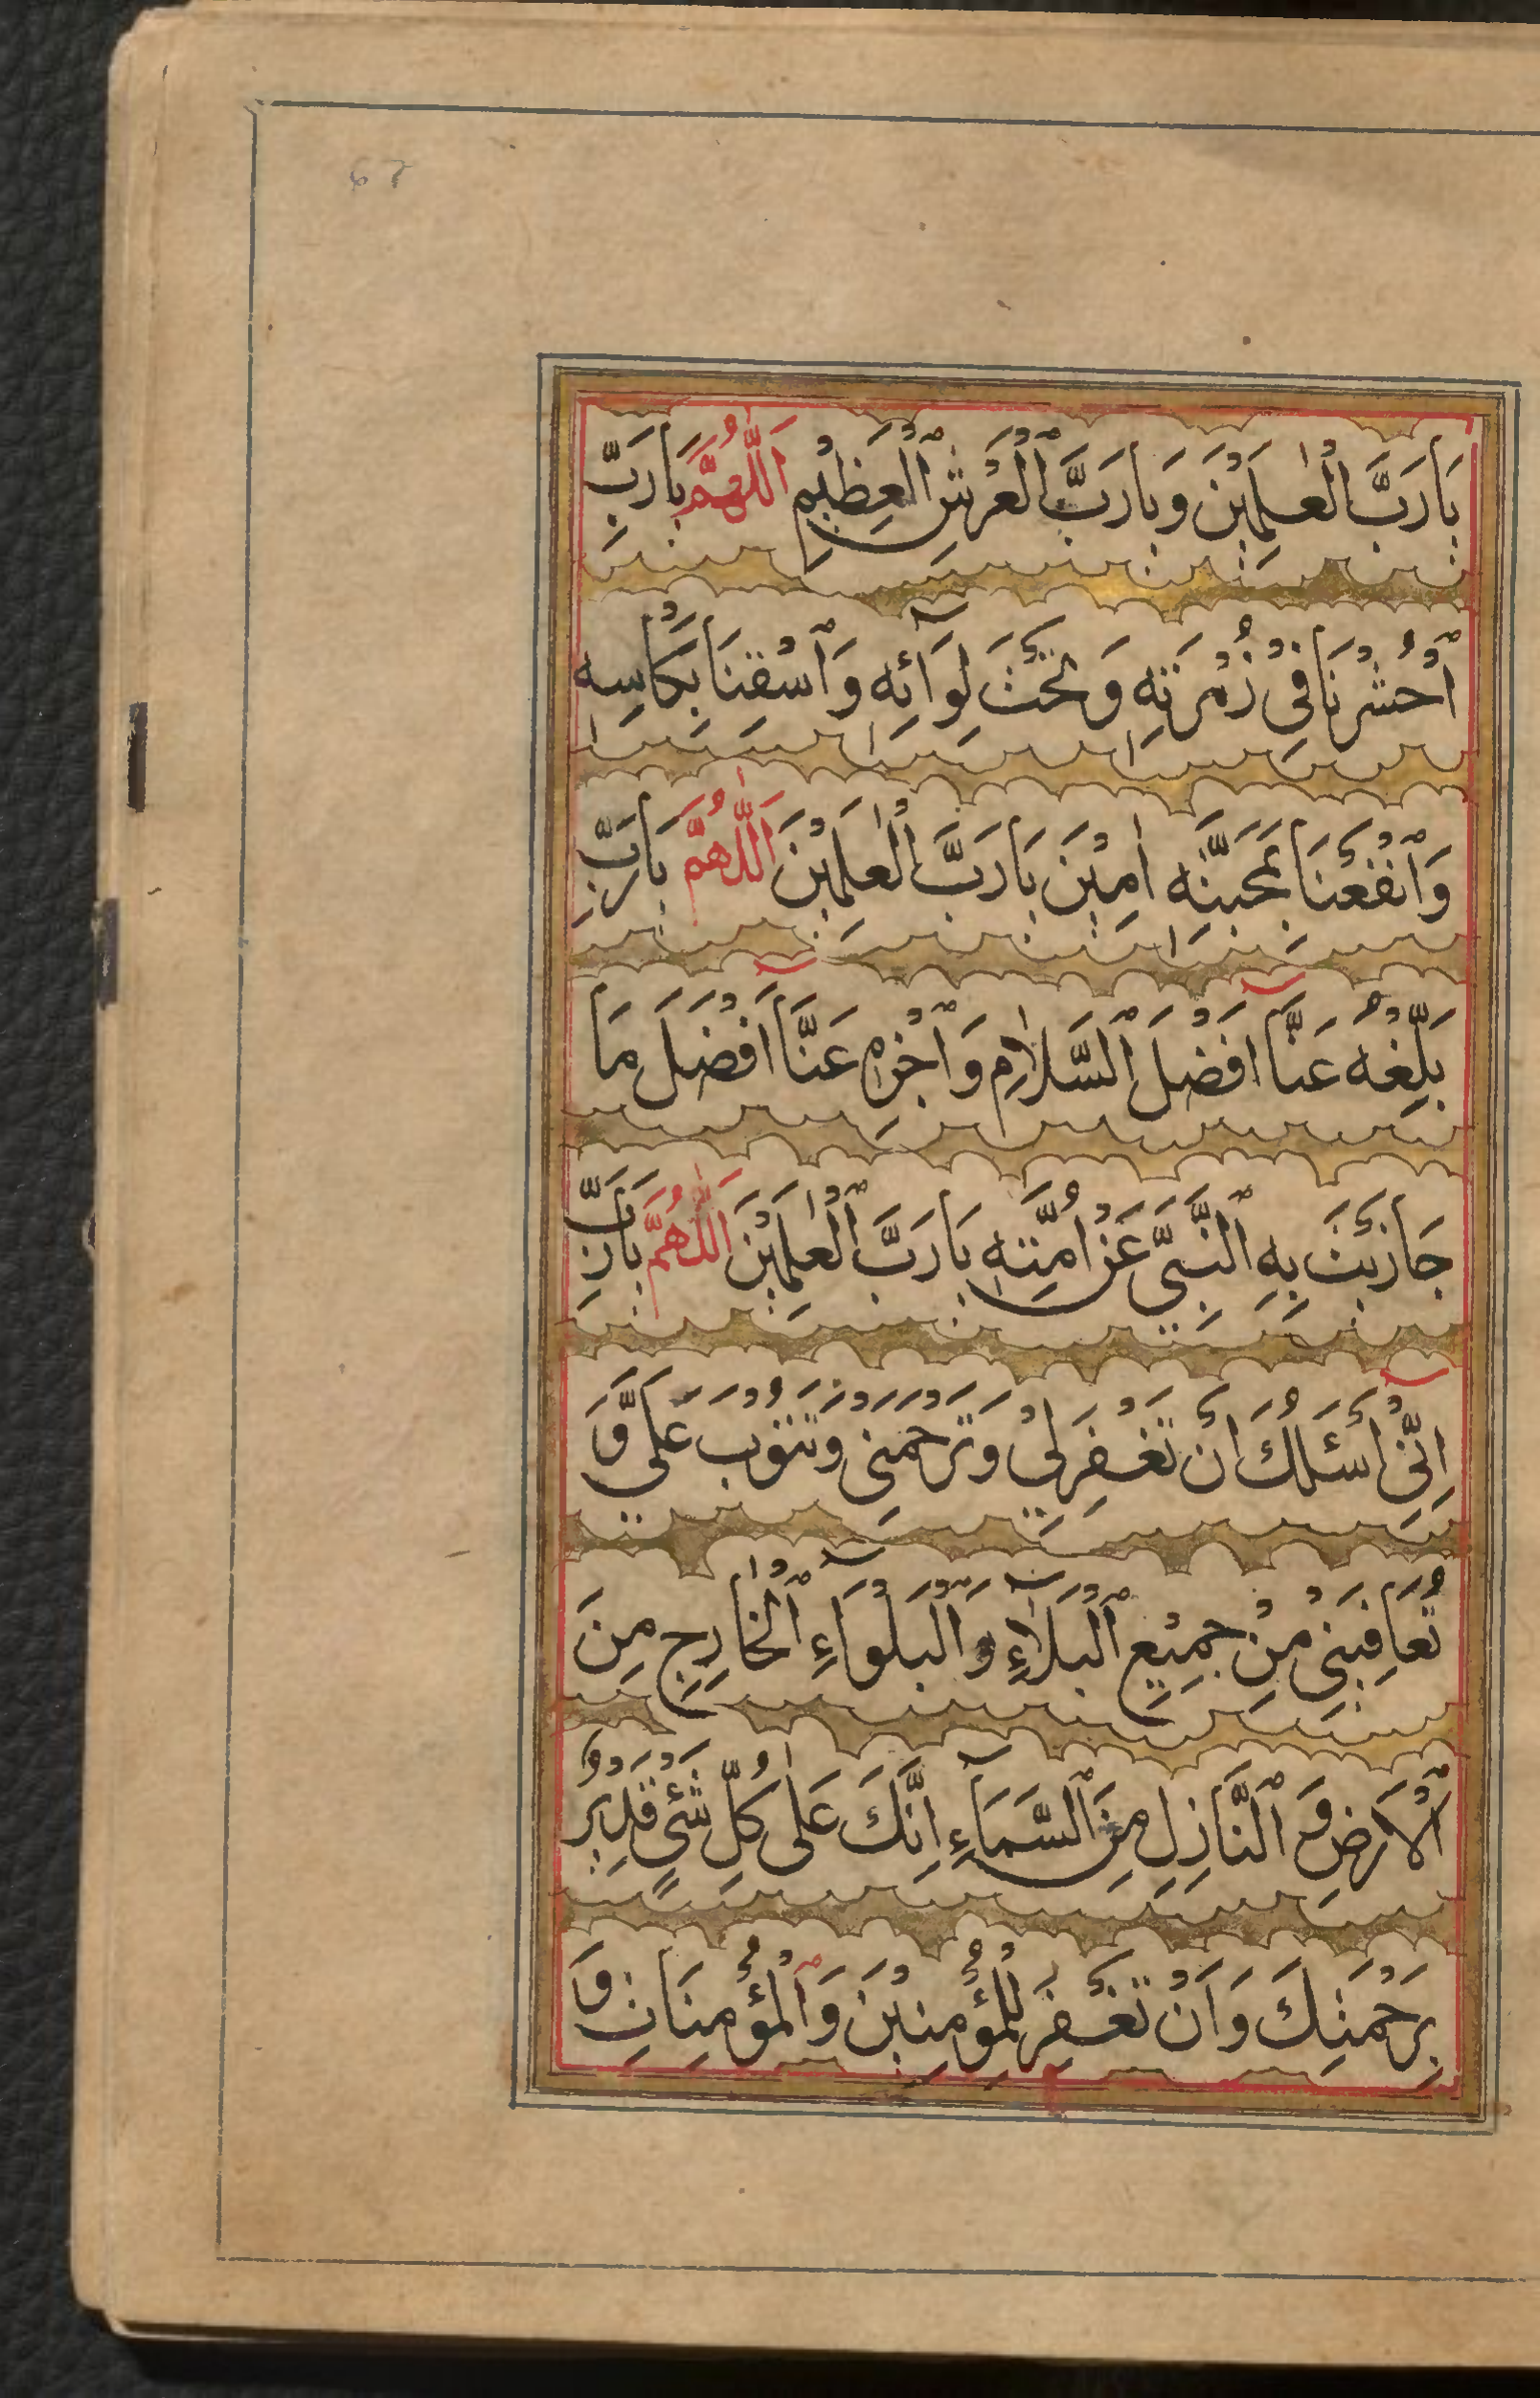 62
يَا رَبَّ الْعٰلَمِيْنَ وَيَا رَبَّ الْعَرْشِ الْعَظِيْمِ اَللّٰهُمَّ يَا رَبِّ
احْشُرْنَا فِيْ زُمْرَتِهٖ وَتَحْتَ لِوَآئِهٖ وَاسْقِنَا بِكَاْسِهٖ
وَانْفَعْنَا بِمَحَبَّتِهٖ اٰمِيْنَ يَا رَبَّ الْعٰلَمِيْنَ اَللّٰهُمَّ يَا رَبِّ
بَلِّغْهُ عَنَّا اَفْضَلَ السَّلَامِ وَاجْزِهٖ عَنَّا اَفْضَلَ مَا
جَازَيْتَ بِهِ النَّبِيَّ عَنْ اُمَّتِهٖ يَا رَبَّ الْعٰلَمِيْنَ اَللّٰهُمَّ يَا رَبِّ
اِنِّيْ اَسْئَلُكَ اَنْ تَغْفِرَ لِيْ وَتَرْحَمَنِيْ وَتَتُوْبَ عَلَيَّ وَ
تُعَافِيَنِيْ مِنْ جَمِيْعِ الْبَلَآءِ وَالْبَلْوَآءِ الْخَارِجِ مِنَ
الْاَرْضِ وَ النَّازِلِ مِنَ السَّمَآءِ اِنَّكَ عَلٰى كُلِّ شَيْءٍ قَدِيْرٌ
بِرَحْمَتِكَ وَاَنْ تَغْفِرَ لِلْمُؤْمِنِيْنَ وَالْمُؤْمِنَاتِ وَ